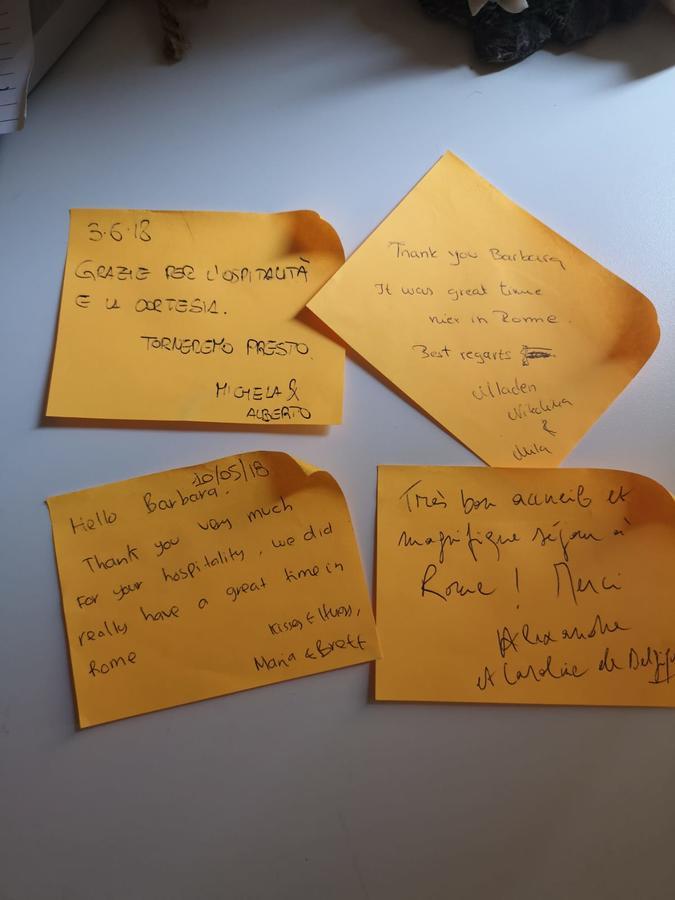 3.6.18
GRAZIE PER L'OSPITALITÀ
E LA CORTESIA.
TORNEREMO PRESTO.
MICHELA &
ALBERTO
Thank you Barbara
It was great time
hier in Rome.
Best regarts
Mladen
Nikolina
&
Mila
20/05/18
Hello Barbara.
Thank you very much
For your hospitality, we did
really have a great time in
Rome
Kisses & Hugs,
Maria & Brett
Très bon accueil et
magnifique séjour à
Rome ! Merci
Alexandre
et Caroline de Belgique